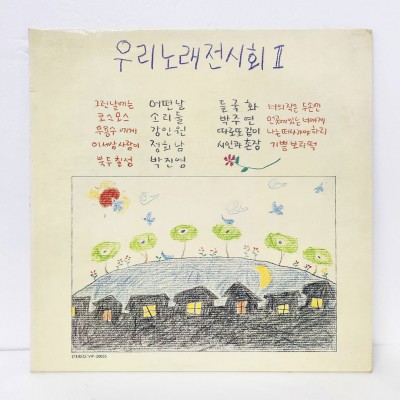 우리노래전시회 II
그런날에는 어떤날 들국화 너의 작은 두손엔
코스모스 소리들 박주연 먼곳에있는 너에게
무용수에게 강인원 따로또같이 나는 떠나가야하리
이세상사랑이 정희남 시인과 촌장 기쁨 보리떡
북두칠성 박진영
STEREO/VIP-20055